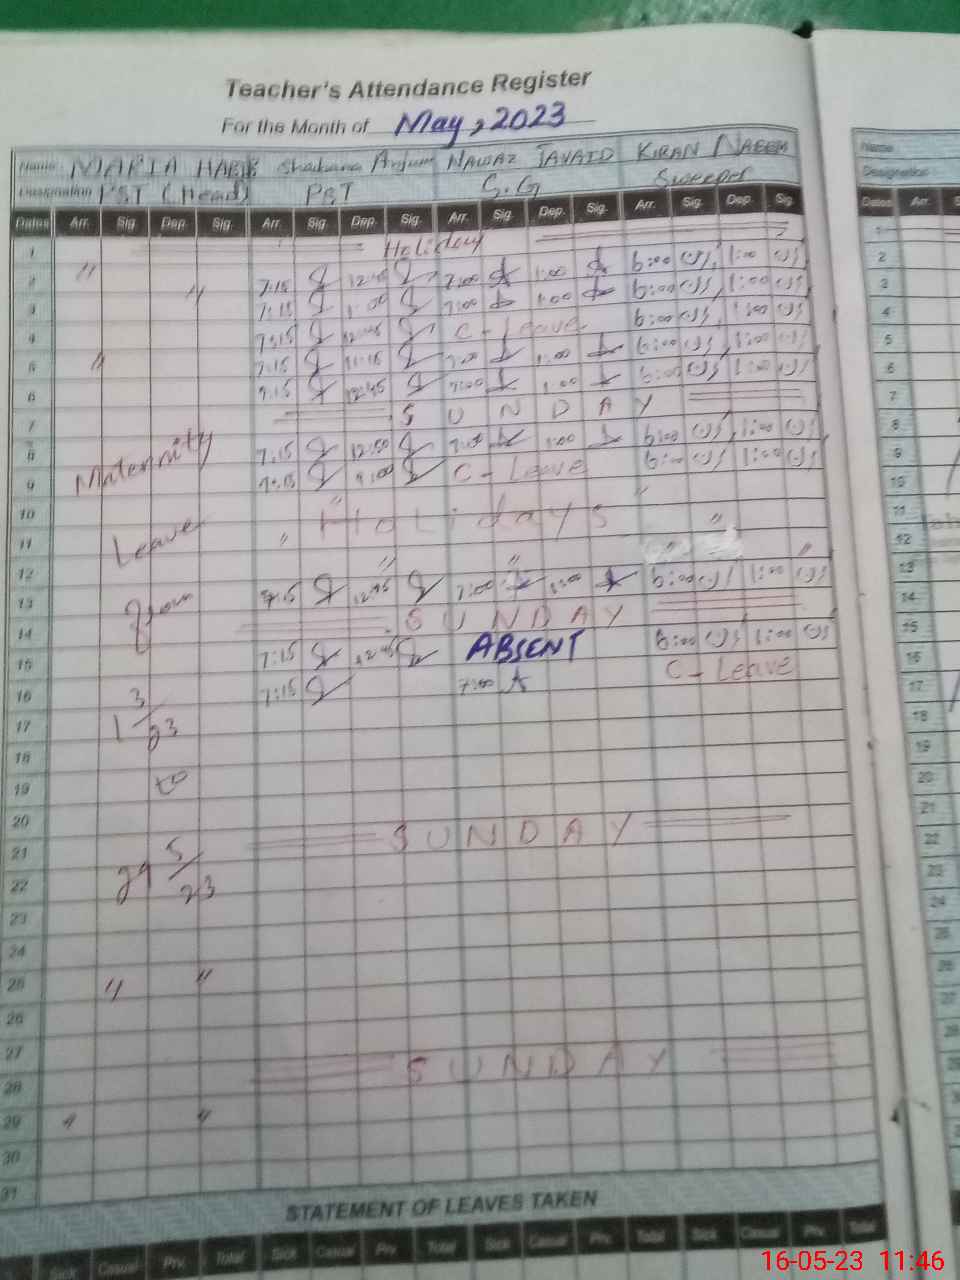 Teacher's Attendance Register
For the Month of May, 2023
Name MARIA HABIB Shabana Anjum NAWAZ JAVAID KIRAN NAEEM Name
Designation PST (Head) PST S.G Sweeper Designation
Dates Arr. Sig. Dep. Sig. Arr. Sig. Dep. Sig. Arr. Sig. Dep. Sig. Arr. Sig. Dep. Sig. Dates Arr.
1 Holiday 1
2 " 7:15 12:45 7:00 1:00 6:00 1:00 2
3 " 7:15 1:00 7:00 1:00 6:00 1:00 3
4 7:15 12:45 C-Leave 6:00 1:00 4
5 " 7:15 11:15 7:00 1:00 6:00 1:00 5
6 7:15 12:45 7:00 1:00 6:00 1:00 6
7 SUNDAY 7
8 Maternity 7:15 12:50 7:00 1:00 6:00 1:00 8
9 7:15 C-Leave 6:00 1:00 9
10 Leave " Holidays " 10
11 " " 11
12 " " " 12
13 from 7:15 12:45 7:00 1:00 6:00 1:00 13
14 SUNDAY 14
15 7:15 12:45 ABSENT 6:00 1:00 15
16 1 3/23 7:15 7:00 C-Leave 16
17 17
18 18
19 to 19
20 20
21 SUNDAY 21
22 29 5/23 22
23 23
24 24
25 " " 25
26 26
27 27
28 SUNDAY
29 " "
30
31
STATEMENT OF LEAVES TAKEN
Sick Casual Prv. Total Sick Casual Prv. Total Sick Casual Prv. Total Sick Casual Prv. Total
16-05-23 11:46